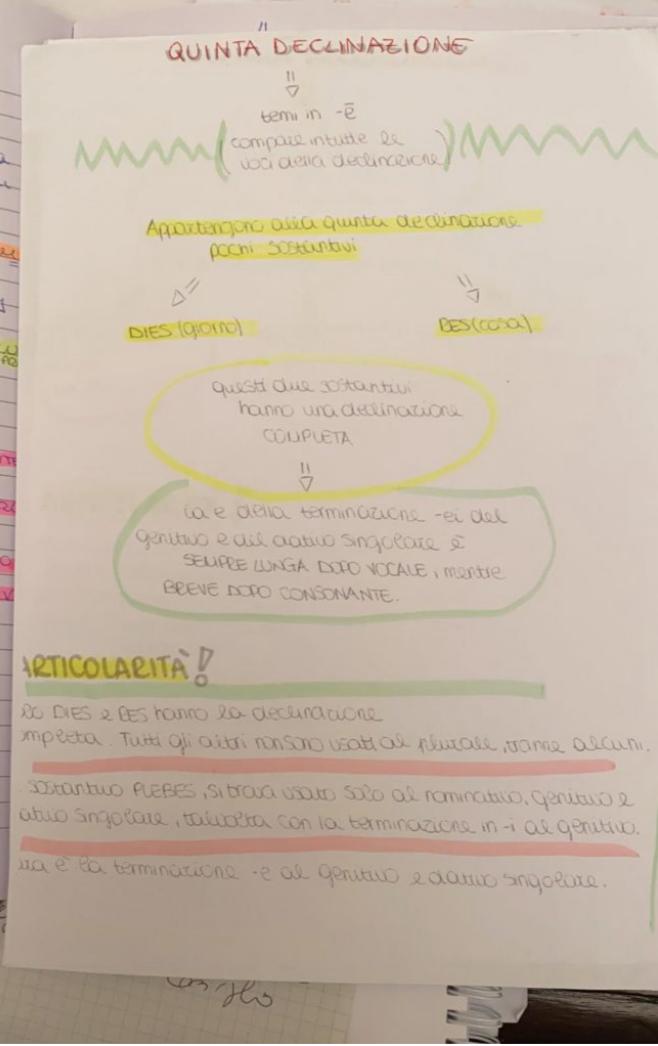 QUINTA DECLINAZIONE
temi in -ē
(compare in tutte le
voci della declinazione)
Appartengono alla quinta declinazione
pochi sostantivi
DIES (giorno)
RES (cosa)
questi due sostantivi
hanno una declinazione
COMPLETA
la e della terminazione -ei del
genitivo e del dativo singolare è
SEMPRE LUNGA DOPO VOCALE, mentre
BREVE DOPO CONSONANTE.
ARTICOLARITÀ!
lo DIES e RES hanno la declinazione
mpleta. Tutti gli altri non sono usati al plurale, tranne alcuni.
sostantivo PLEBES, si trova usato solo al nominativo, genitivo e
ativo singolare, talvolta con la terminazione in -i al genitivo.
è la terminazione -e al genitivo e dativo singolare.